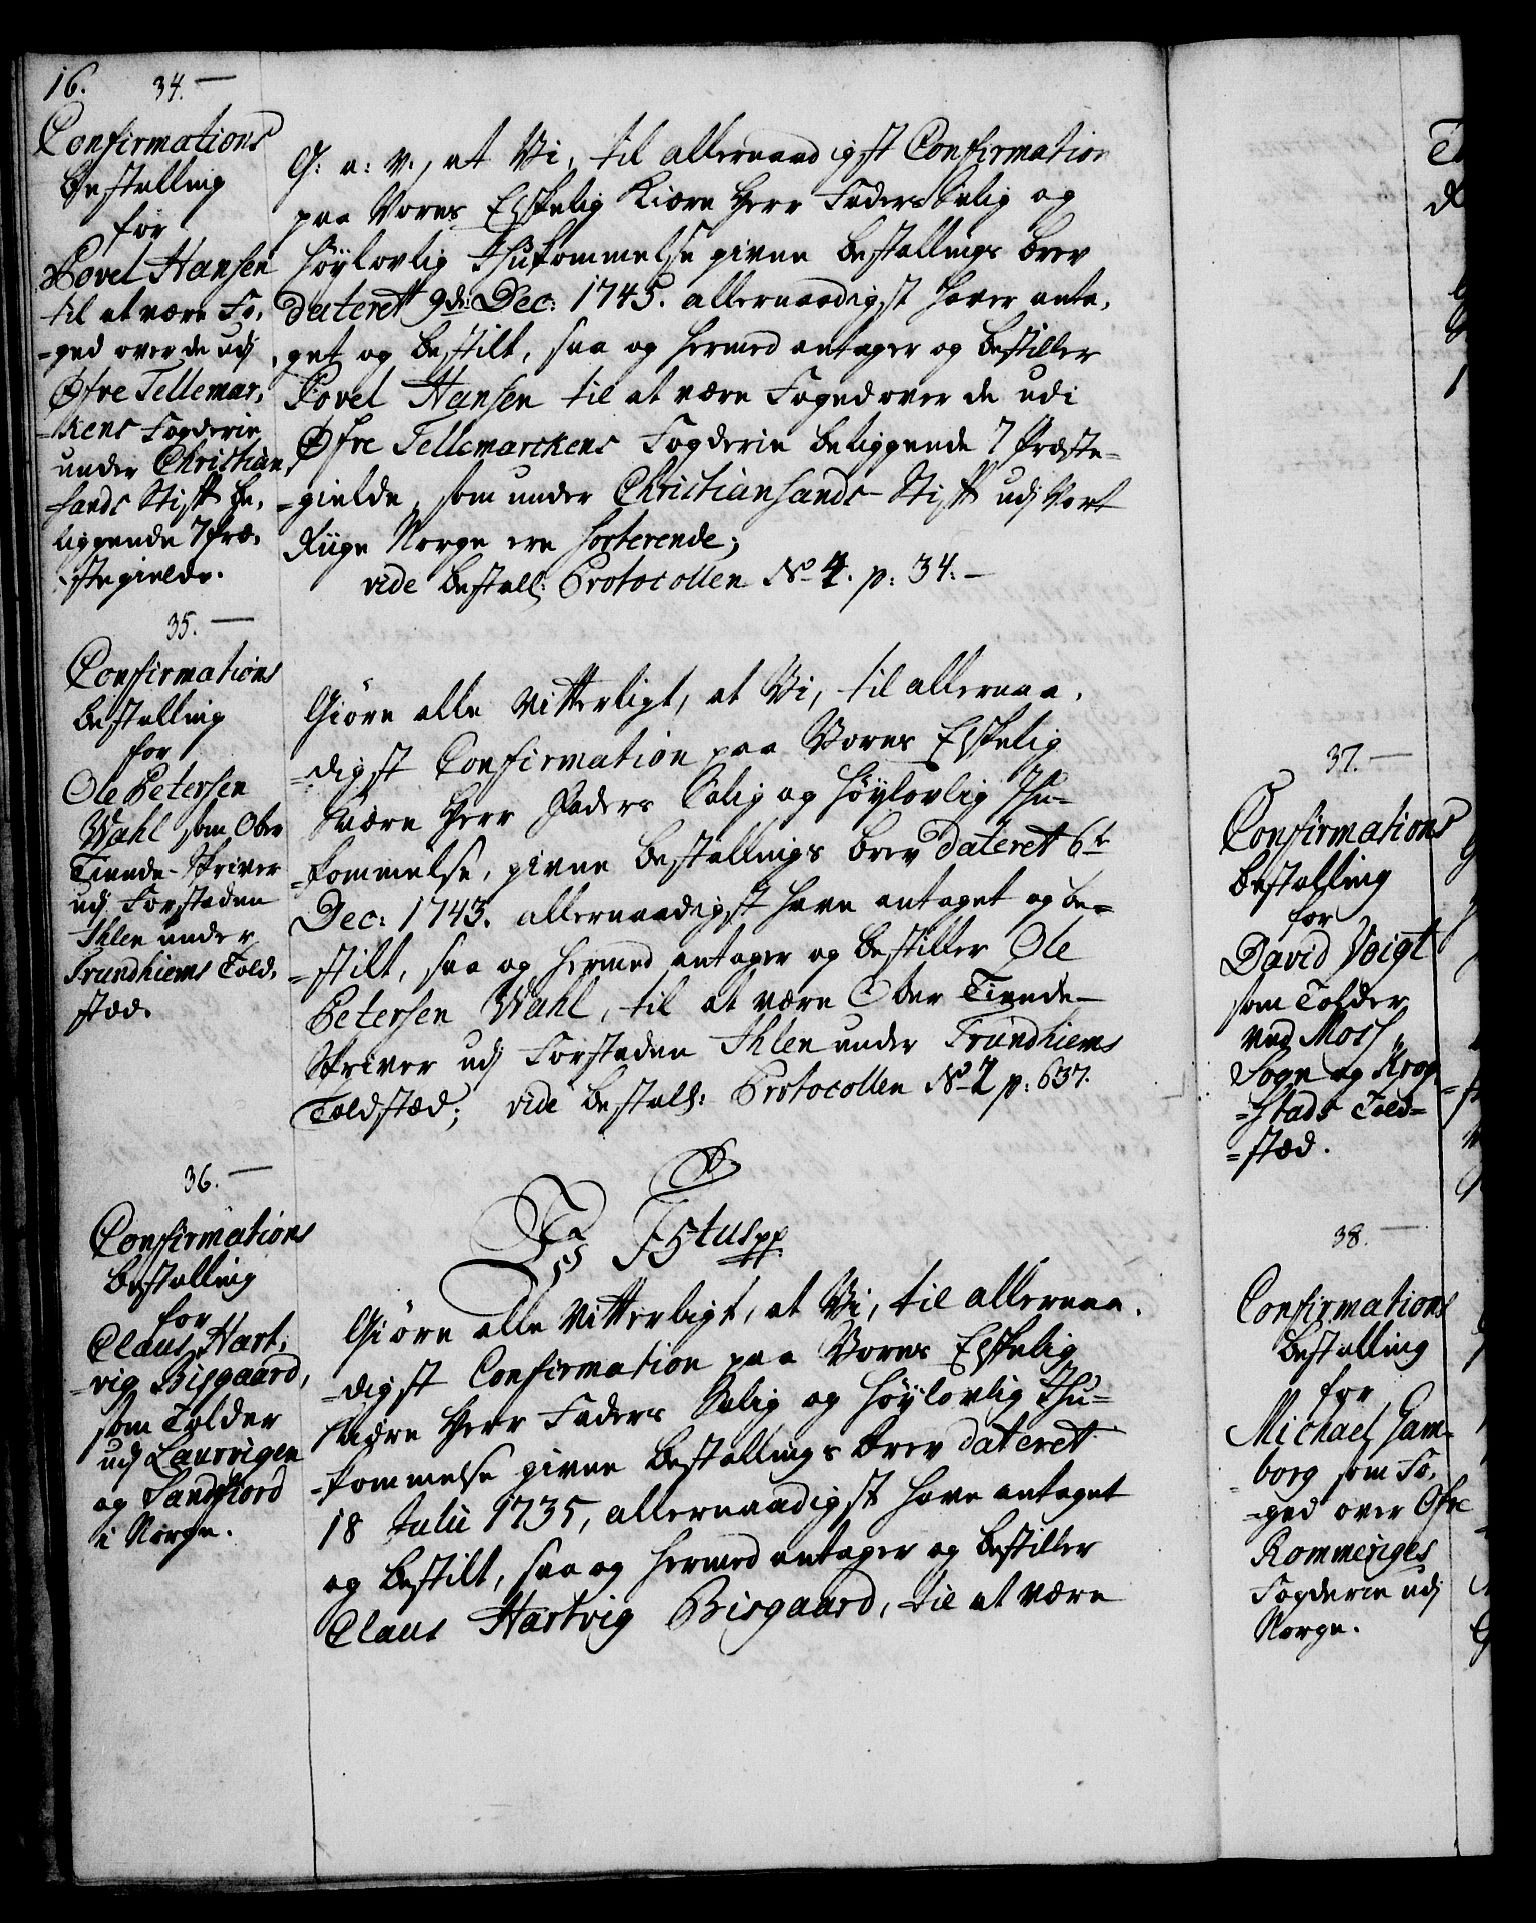 16.
34.
Confirmations
bestalling
for
Povel Hansen
til at være Fo,
-ged over de udj
Øfre Tellemar,
-kens Fogderie
under Christian
-sands Stift be,
liggende 7 Præ,
-stegielde.
G: a: V:, at Vi, til allernaadigst Confirmation
paa Vores Elskelig Kiære Herr Faders Salig og
Høylovlig Ihukommelse givne bestallings brev
dateret 9de Dec: 1745. allernaadigst haver anta,
get og bestilt, saa og hermed antager og bestiller
Povel Hansen til at være Foged over de udi
Øfre Tellemarckens Fogderie beliggende 7 Præste-
-gielde, som under Christiansands Stift udj Vort
Riige Norge ere sorterende;
vide bestall: Protocollen No 4. p: 34.
35.
Confirmations
bestalling
for
Ole Petersen
Wahl som Ober
Tiende-Skriver
udj Forstaden
Ihlen under
Trundhiems Told,
stæd.
Giøre alle Vitterligt, at Vi, til allernaa,
-digst Confirmation paa Vores Elskelig
Kiære Herr Faders Salig og Høylovlig Ihu-
-kommelse, givne bestallings brev dateret 6t
Dec: 1743. allernaadigst have antaget og be-
-stilt, saa og hermed antager og bestiller Ole
Petersen Wahl, til at være Ober Tiende-
Skriver udj Forstaden Ihlen under Trundhiems
Toldstæd; vide bestall: Protocollen No 2 p: 637.
36.
Confirmations
bestalling
for
Claus Hart,
-vig Bisgaard,
som Tolder
udj Laurvigen
og Sandfiord
i Norge.
Fr 5tus pp
Giøre alle Vitterligt, at Vi, til allernaa,
-digst Confirmation paa Vores Elskelig
Kiære Herr Faders Salig og Høylovlig Ihu-
-kommelse givne bestallings brev dateret
18 Julii 1735, allernaadigst have antaget
og bestilt, saa og hermed antager og bestiller
Claus Hartvig Bisgaard, til at være
37.
Confirmations
bestalling
for
David Voigt
som Tolder
ved Moss,
Sogn og Krog
-stads Told-
-stæd.
38.
Confirmations
bestalling
for
Michael Gam-
borg som Fo,
-ged over Øfre
Rommeriges
Fogderie udj
Norge.